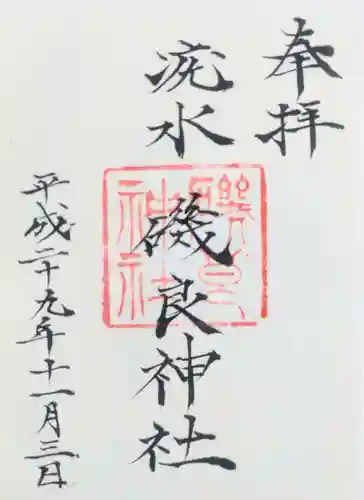 奉拝
疣水
磯良神社
平成二十九年十一月三日